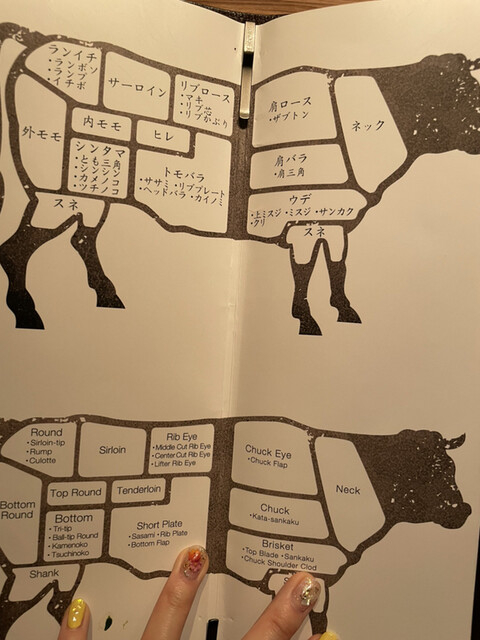 ランイチ
・ランボソ
・ランプ
・イチボ
サーロイン
リブロース
・マキ
・リブ芯
・リブかぶり
肩ロース
・ザブトン
ネック
外モモ
内モモ
ヒレ
シンタマ
・とも三角
・シンシン
・カメノコ
・ツチノコ
トモバラ
・ササミ・リブプレート
・ヘッドバラ・カイノミ
肩バラ
・肩三角
ウデ
・上ミスジ・ミスジ・サンカク
・クリ
スネ
スネ
Round
・Sirloin-tip
・Rump
・Culotte
Sirloin
Rib Eye
・Middle Cut Rib Eye
・Center Cut Rib Eye
・Lifter Rib Eye
Chuck Eye
・Chuck Flap
Neck
Bottom
Round
Top Round
Tenderloin
Bottom
・Tri-tip
・Ball-tip Round
・Kamenoko
・Tsuchinoko
Short Plate
・Sasami・Rib Plate
・Bottom Flap
Chuck
・Kata-sankaku
Brisket
・Top Blade・Sankaku
・Chuck Shoulder Clod
Shank